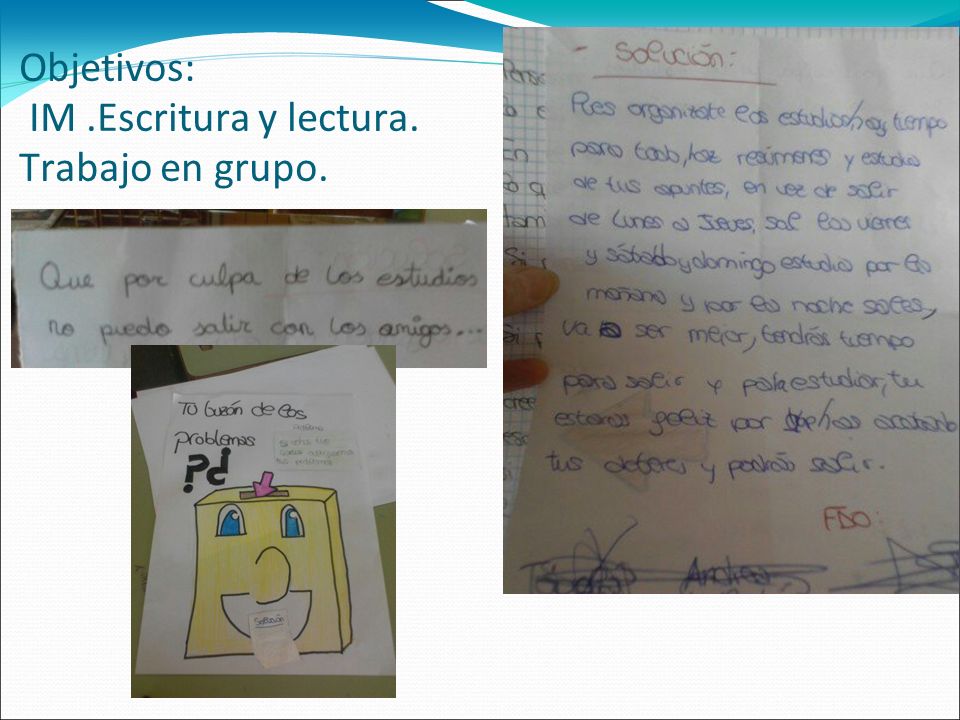 Objetivos:
IM .Escritura y lectura.
Trabajo en grupo.
Que por culpa de los estudios
no puedo salir con los amigos...
Tu buzón de los
problemas
??
Solución
- Solución:
Pues organizate los estudios, hay tiempo
para todo, haz resúmenes y estudia
de tus apuntes, en vez de salir
de Lunes a Jueves, sal los viernes
y sábado y domingo estudia por la
mañana y por la noche sales,
va a ser mejor, tendrás tiempo
para salir y para estudiar, tu
estaras feliz por
tus deberes y podrás salir.
FDO:
Andrea